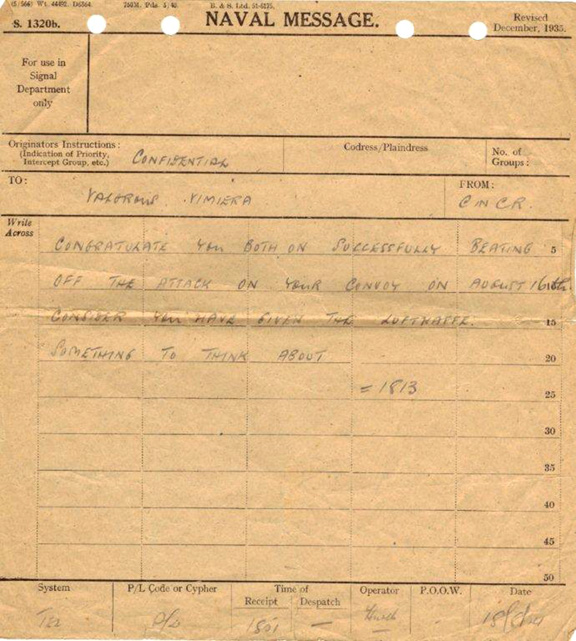 NAVAL MESSAGE.
S. 1320b.
Revised
December, 1935.
For use in
Signal
Department
only
Originators Instructions:
(Indication of Priority,
Intercept Group, etc.)
CONFIDENTIAL
Codress/Plaindress
No. of
Groups:
TO:
VALOROUS VIMIERA
FROM:
C IN C R.
Write
Across
CONGRATULATE YOU BOTH ON SUCCESSFULLY BEATING 5
OFF THE ATTACK ON YOUR CONVOY ON AUGUST 16th.
CONSIDER YOU HAVE GIVEN THE LUFTWAFFE. 15
SOMETHING TO THINK ABOUT 20
= 1813
25
30
35
40
45
50
System
P/L Code or Cypher
Time of
Receipt
Despatch
Operator
P.O.O.W.
Date
P/L